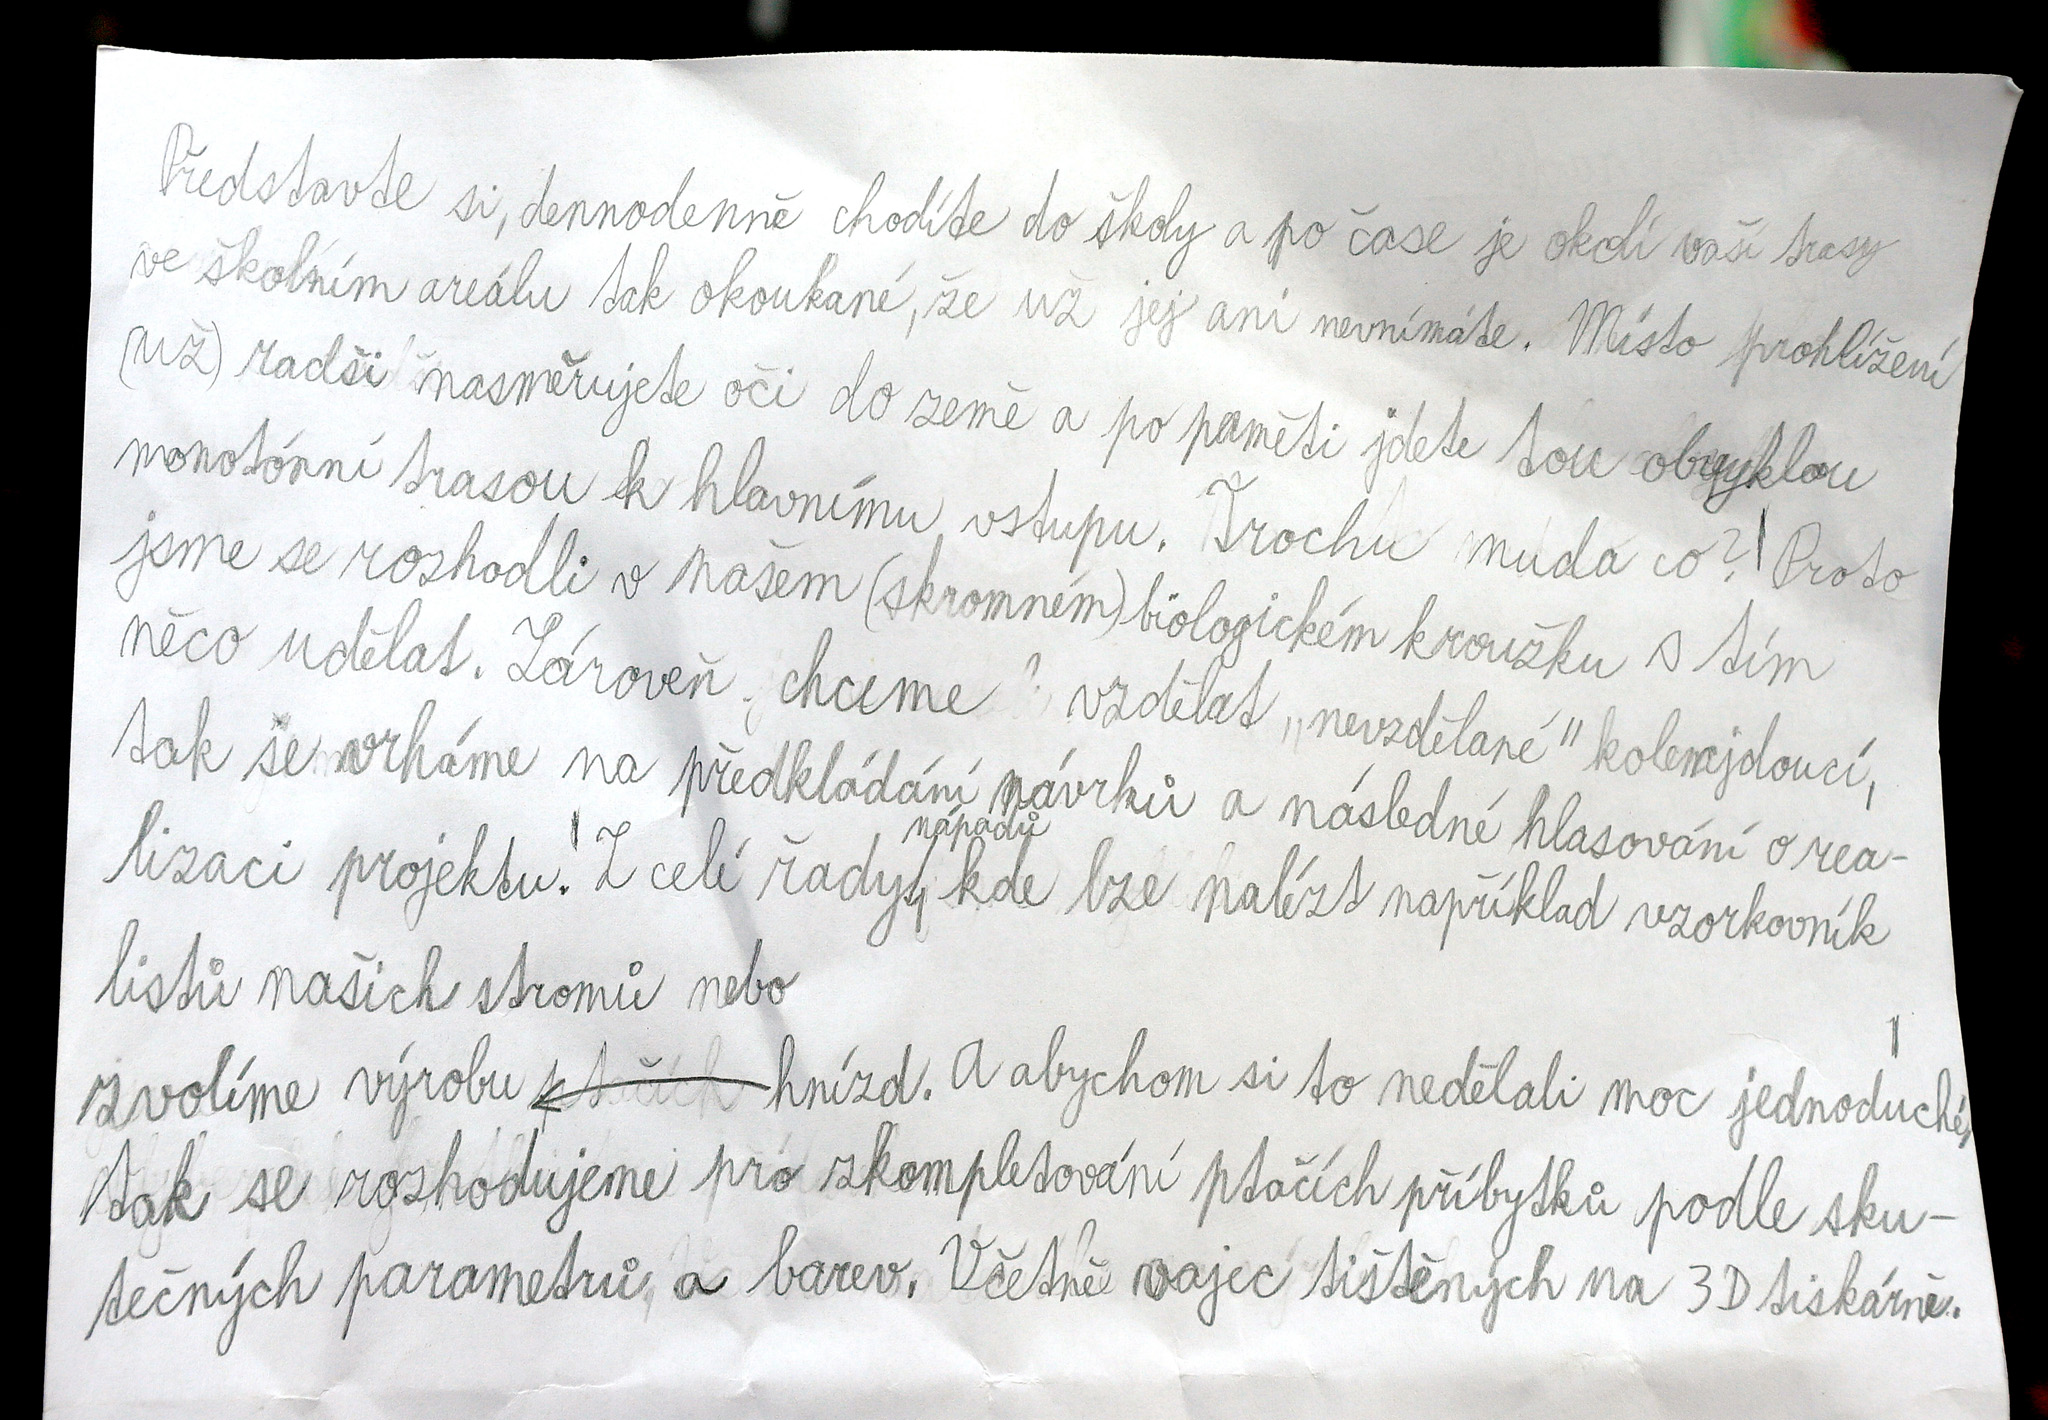 Představte si, dennodenně chodíte do školy a po čase je okolí vaší trasy
ve školním areálu tak okoukané, že už jej ani nevnímáte. Místo prohlížení
(už) radši nasměrujete oči do země a po paměti jdete tou obvyklou
monotónní trasou k hlavnímu vstupu. Trochu nuda co?! Proto
jsme se rozhodli v našem (skromném) biologickém kroužku s tím
něco udělat. Zároveň chceme ? vzdělat „nevzdělané" kolemjdoucí,
tak se vrháme na předkládání návrhů a následné hlasování o rea-
nápadů
lizaci projektu! Z celé řady, kde lze nalézt například vzorkovník
listů našich stromů nebo
zvolíme výrobu ptačích hnízd. A abychom si to nedělali moc jednoduché,
tak se rozhodujeme pro zkompletování ptačích příbytků podle sku-
tečných parametrů a barev. Včetně vajec tištěných na 3D tiskárně.